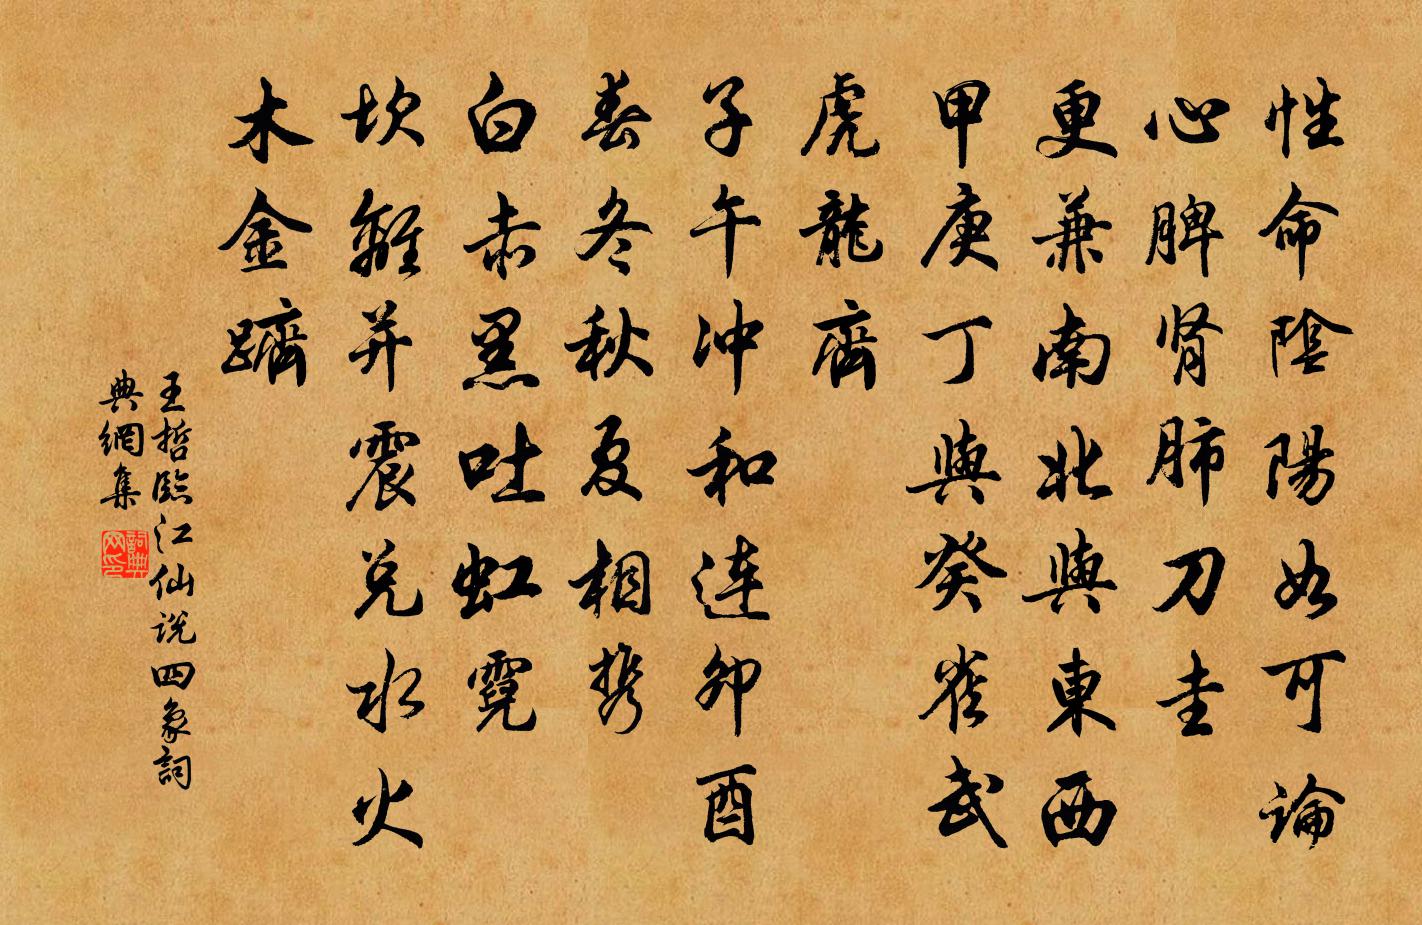 性命陰陽如可論
心脾腎肺刀圭
更兼南北與東西
甲庚丁與癸雀武
虎龍齊
子午冲和連卯酉
春冬秋夏相携
白赤黑吐虹霓
坎離并震兑水火
木金躋
王哲臨江仙说四象詞
典網集
詞典
网印